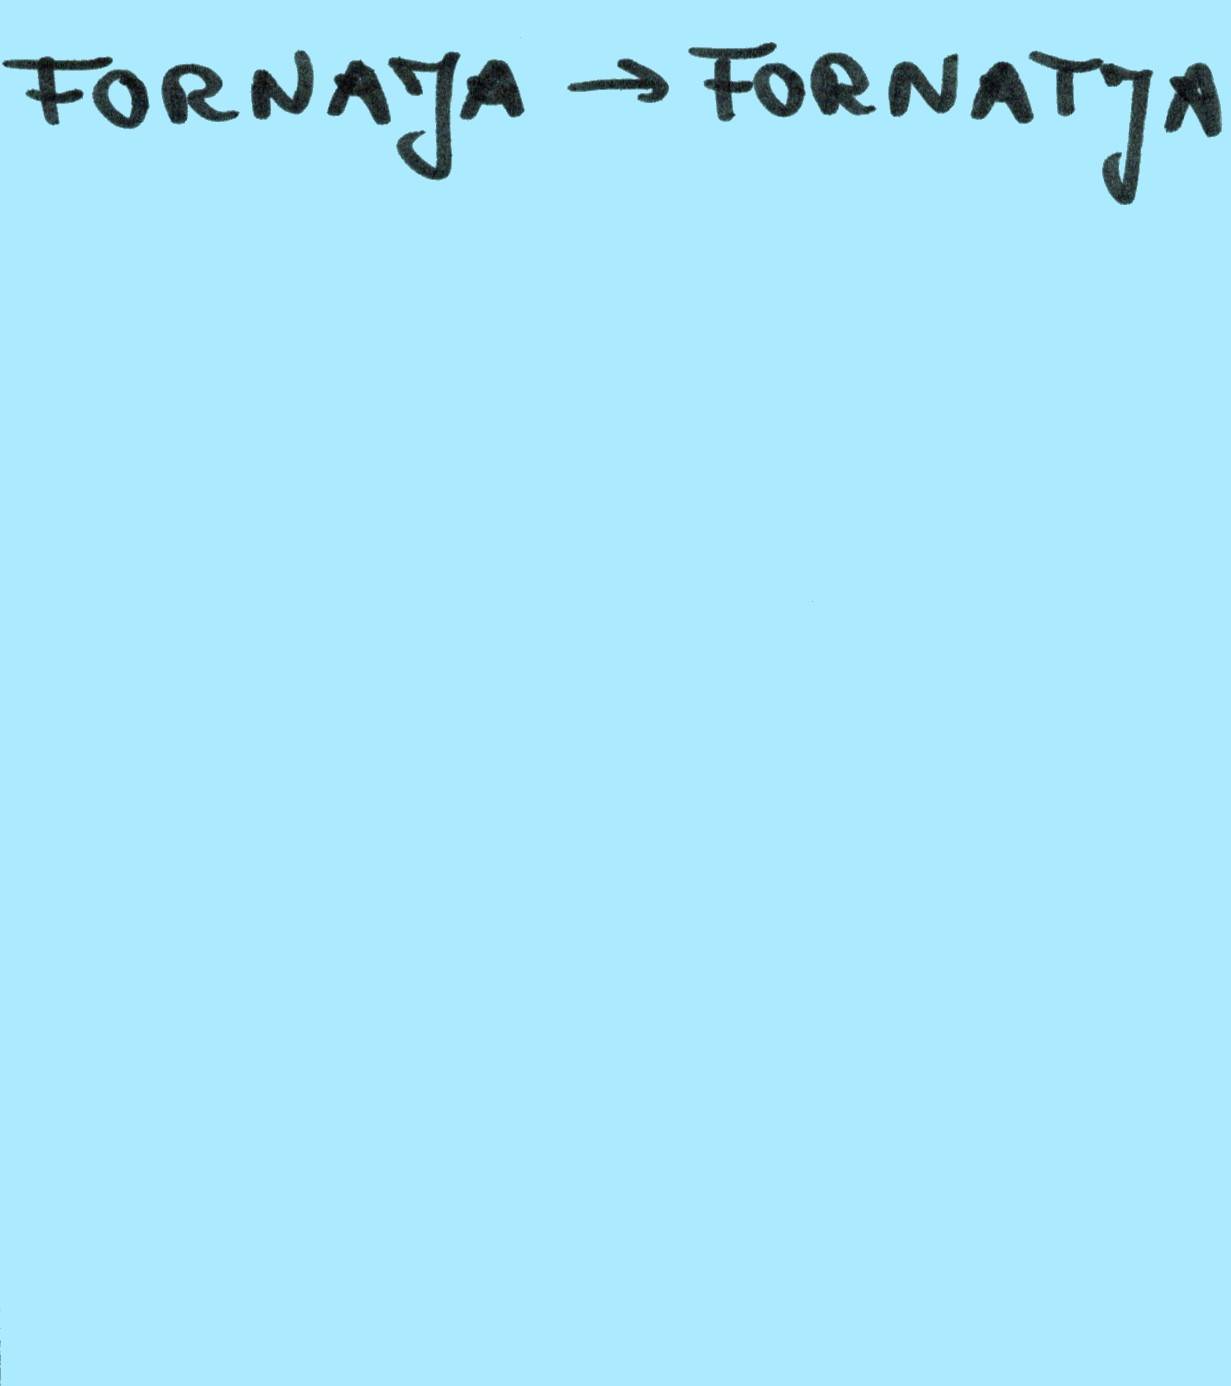 FORNAJA → FORNATJA